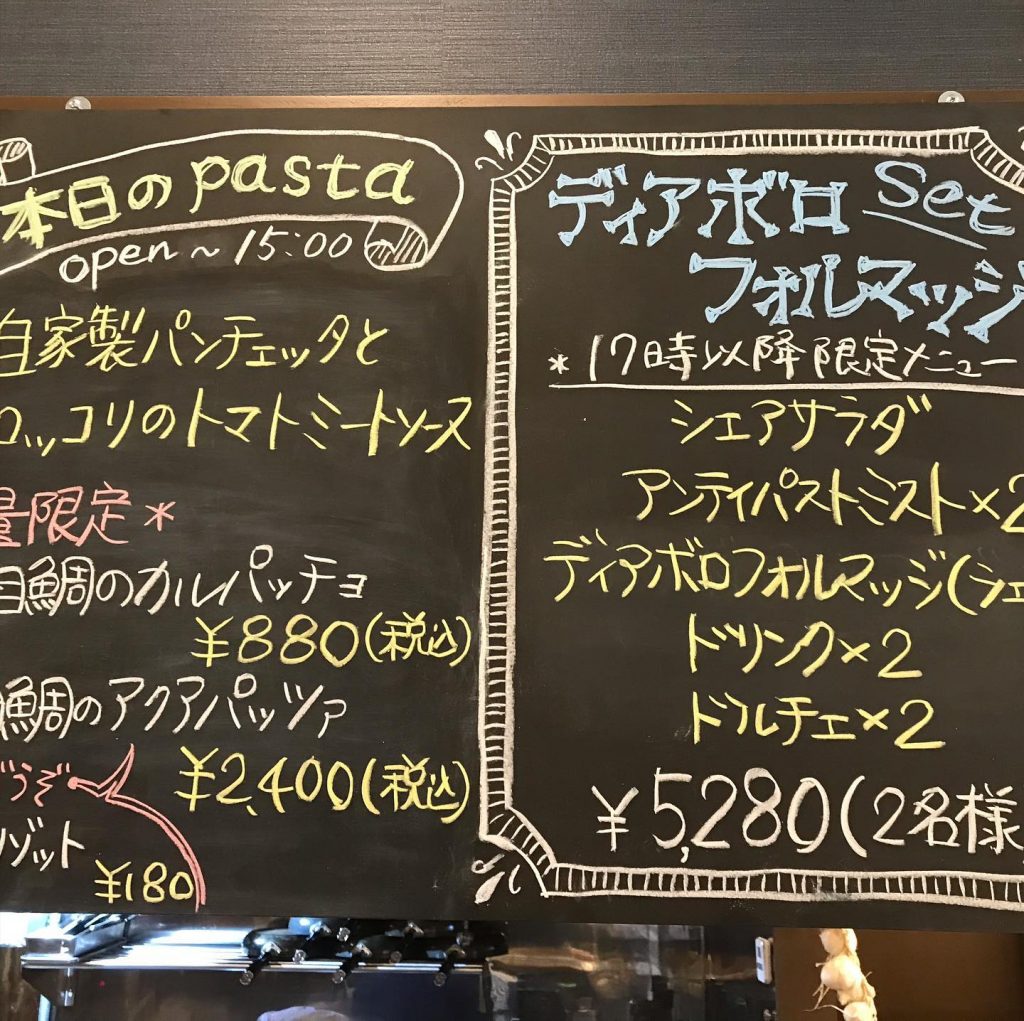 本日のpasta
open～15:00
自家製パンチェッタと
ロッコリのトマトミートソース
量限定*
目鯛のカルパッチョ
¥880(税込)
鯛のアクアパッツァ
¥2,400(税込)
どうぞ
リゾット
¥180
ディアボロ Set
フォルマッジ
*17時以降限定メニュー
シェアサラダ
アンティパストミスト×2
ディアボロフォルマッジ(シェ
ドリンク×2
ドルチェ×2
¥5,280(2名様